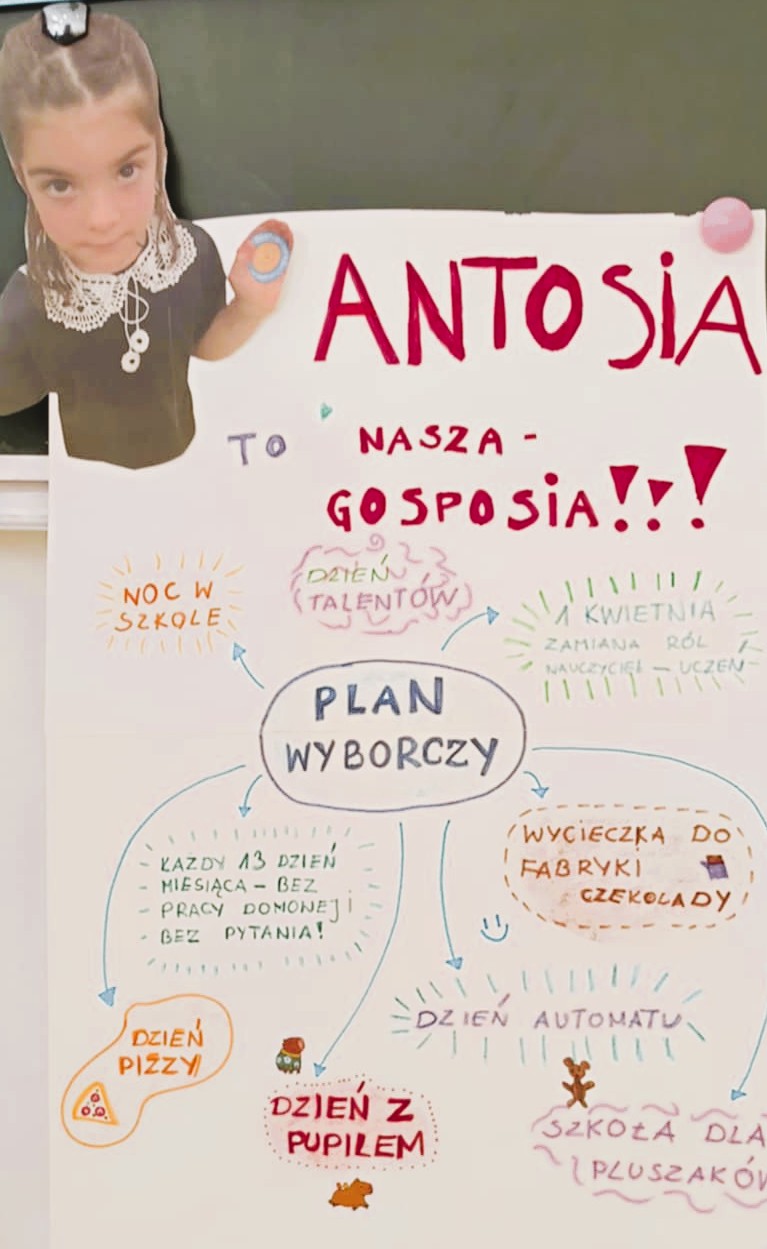 ANTOSIA
TO NASZA -
GOSPOSIA!!!
NOC W
SZKOLE
DZIEŃ
TALENTÓW
1 KWIETNIA
ZAMIANA RÓL
NAUCZYCIEL - UCZEŃ
PLAN
WYBORCZY
- KAŻDY 13 DZIEŃ
- MIESIĄCA - BEZ
- PRACY DOMOWEJ i
- BEZ PYTANIA!
WYCIECZKA DO
FABRYKI
CZEKOLADY
DZIEŃ
PIZZY
DZIEŃ AUTOMATU
DZIEŃ Z
PUPILEM
SZKOŁA DLA
PLUSZAKÓW